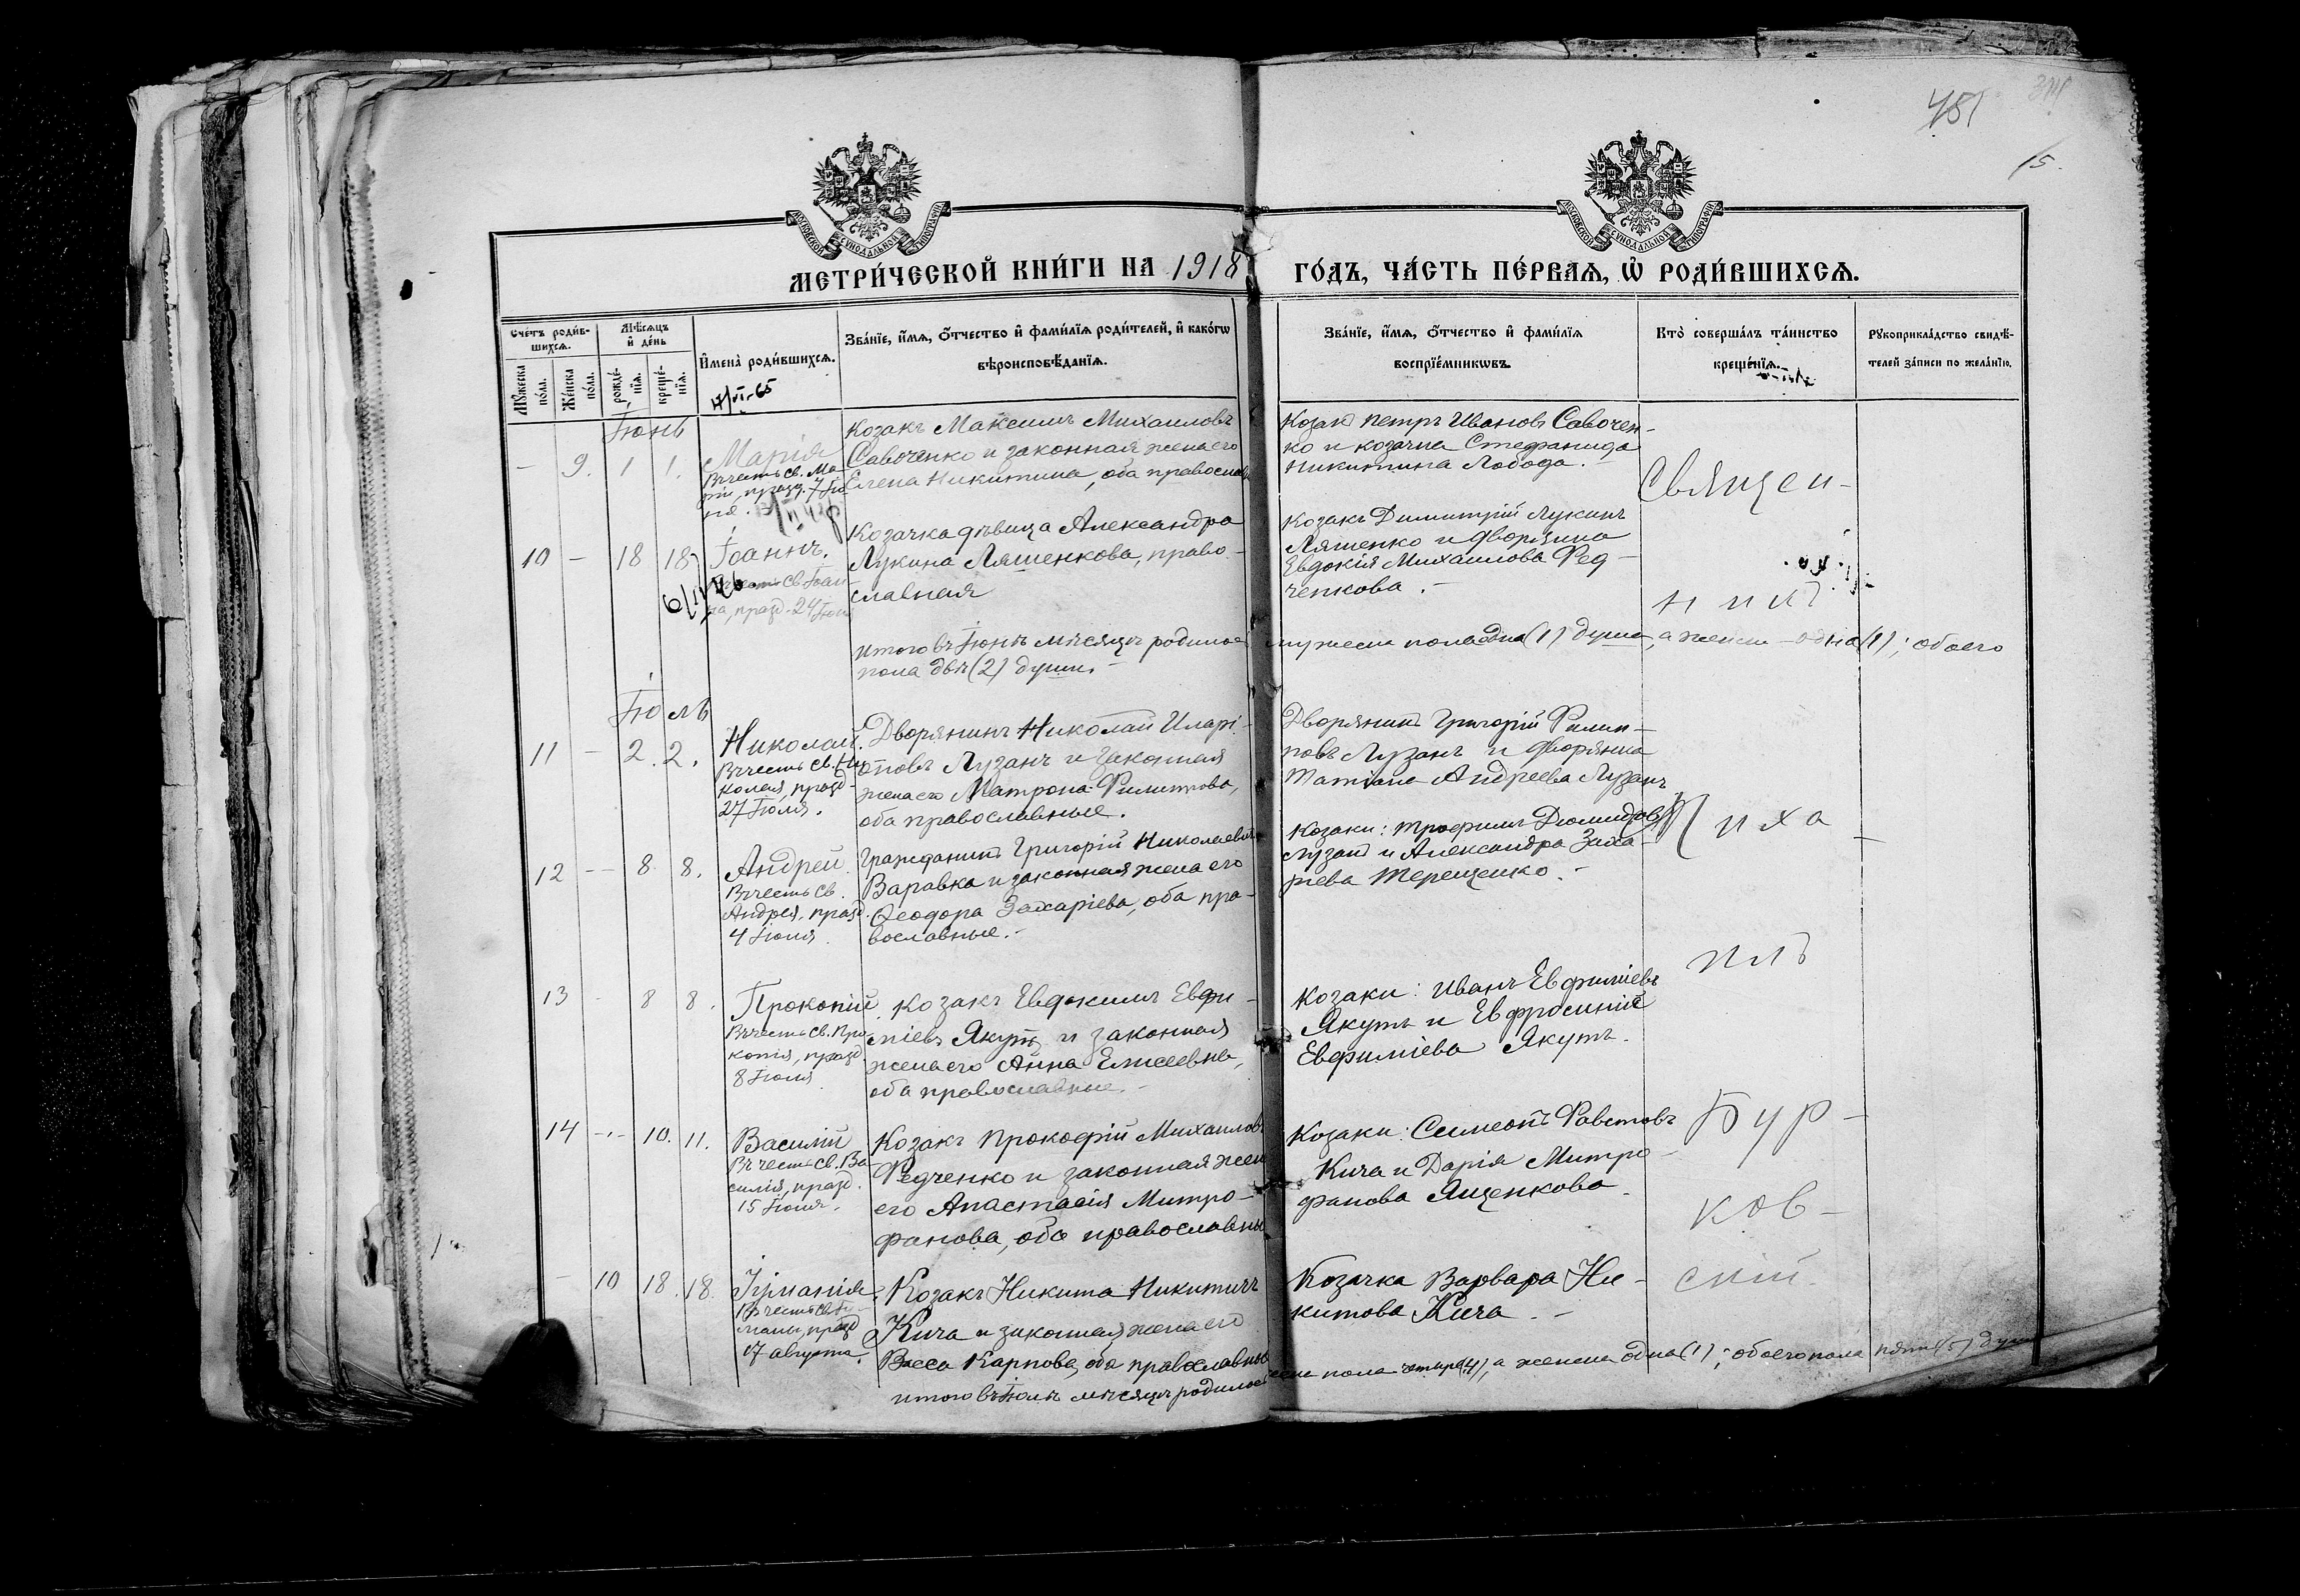 451
15.
МОСКОВСКОЙ СѴНОДАЛЬНОЙ ТИПОГРАФІИ
МОСКОВСКОЙ СѴНОДАЛЬНОЙ ТИПОГРАФІИ
МЕТРИ́ЧЕСКОЙ КНИ́ГИ НА 1918 ГО́ДЪ, ЧА́СТЬ ПЕ́РВАѦ, Ѡ҆ РОДИ́ВШИХСѦ.
Сче́тъ роди́в-
шихсѧ.
Мꙋ́жеска по́ла.
Же́нска по́ла.
Мѣ́сѧцъ
и҆ де́нь
рожде́-
нїѧ.
креще́-
нїѧ.
И҆мена̀ роди́вшихсѧ.
Зва́нїе, и҆́мѧ, ѻ҆́тчество и҆ фами́лїѧ роди́телей, и҆ како́гѡ
вѣроисповѣ́данїѧ.
Зва́нїе, и҆́мѧ, ѻ҆́тчество и҆ фами́лїѧ
воспрїе́мникѡвъ.
Кто̀ соверша́лъ та́инство
креще́нїѧ.
Рꙋкоприкла́дство свидѣ́-
телей за́писи по жела́нїю.
17/VI-65
Іюнь
- 9. 1 1.
Марія
Въ честь св. Ма-
ріи, празд. 7 Ію-
ня.
Козакъ Максимъ Михаиловъ
Савоченко и законная жена его
Елена Никитина, оба православ
Козакъ Петръ Ивановъ Савочен-
ко и козачка Стефанида
Никитина Лобода.
Священ-
10 - 18 18
Іоаннъ.
св. Іоан-
на, празд. 24 Іюня
Козачка дѣвица Александра
Лукина Ляшенкова, право-
славная
Козакъ Димитрій Лукинъ
Ляшенко и дворянка
Евдокія Михаилова Ред-
ченкова.
никъ
Итого въ Іюнѣ мѣсяцѣ родилось мужеска пола одна (1) душа, а женска - одна (1); обоего
пола двѣ (2) души.
Іюль
11 - 2. 2.
Николай.
Въ честь св. Ни-
колая, празд-
27 Іюля.
Дворянинъ Николай Иларі-
оновъ Лузанъ и законная
жена его Матрона Филиппова,
оба православные.
Дворянинъ Григорій Филип-
повъ Лузанъ и дворянка
Татіана Андреева Лузанъ
12 - 8. 8.
Андрей
Въ честь св.
Андрея, празд.
4 Іюля.
Гражданинъ Григорій Николаевъ
Варавка и законная жена его
Ѳеодора Захаріева, оба пра-
вославные.
Козаки: Трофимъ Діомидовъ
Лузанъ и Александра Заха-
ріева Терещенко.
Миха
13 - 8 8.
Прокопій
Въ честь св. Про-
копія, празд
8 Іюля.
Козакъ Евдокимъ Евфи-
міевъ Якутъ и законная
жена его Анна Елисеевна,
оба православные.
Козаки: Иванъ Евфиміевъ
Якутъ и Евфросинія
Евфиміева Якутъ.
илъ
14 - 10. 11.
Василій
Въ честь св. Ва-
силія, празд.
15 Іюля.
Козакъ Прокофій Михаиловъ
Редченко и законная жена
его Анастасія Митро-
фанова, оба православны
Козаки: Симеонъ Фавстовъ
Кича и Дарія Митро-
фанова Ященкова.
Бур-
ков-
скій.
- 10 18. 18.
17 августа.
Козакъ Никита Никитичъ
Кича и законная жена его
Васса Карпова, оба православные
Козачка Варвара Ни-
китова Кича.
Итого въ Іюлѣ мѣсяцѣ родилось пола четыре (4), а женска одна (1); обоего пола пять (5) душъ